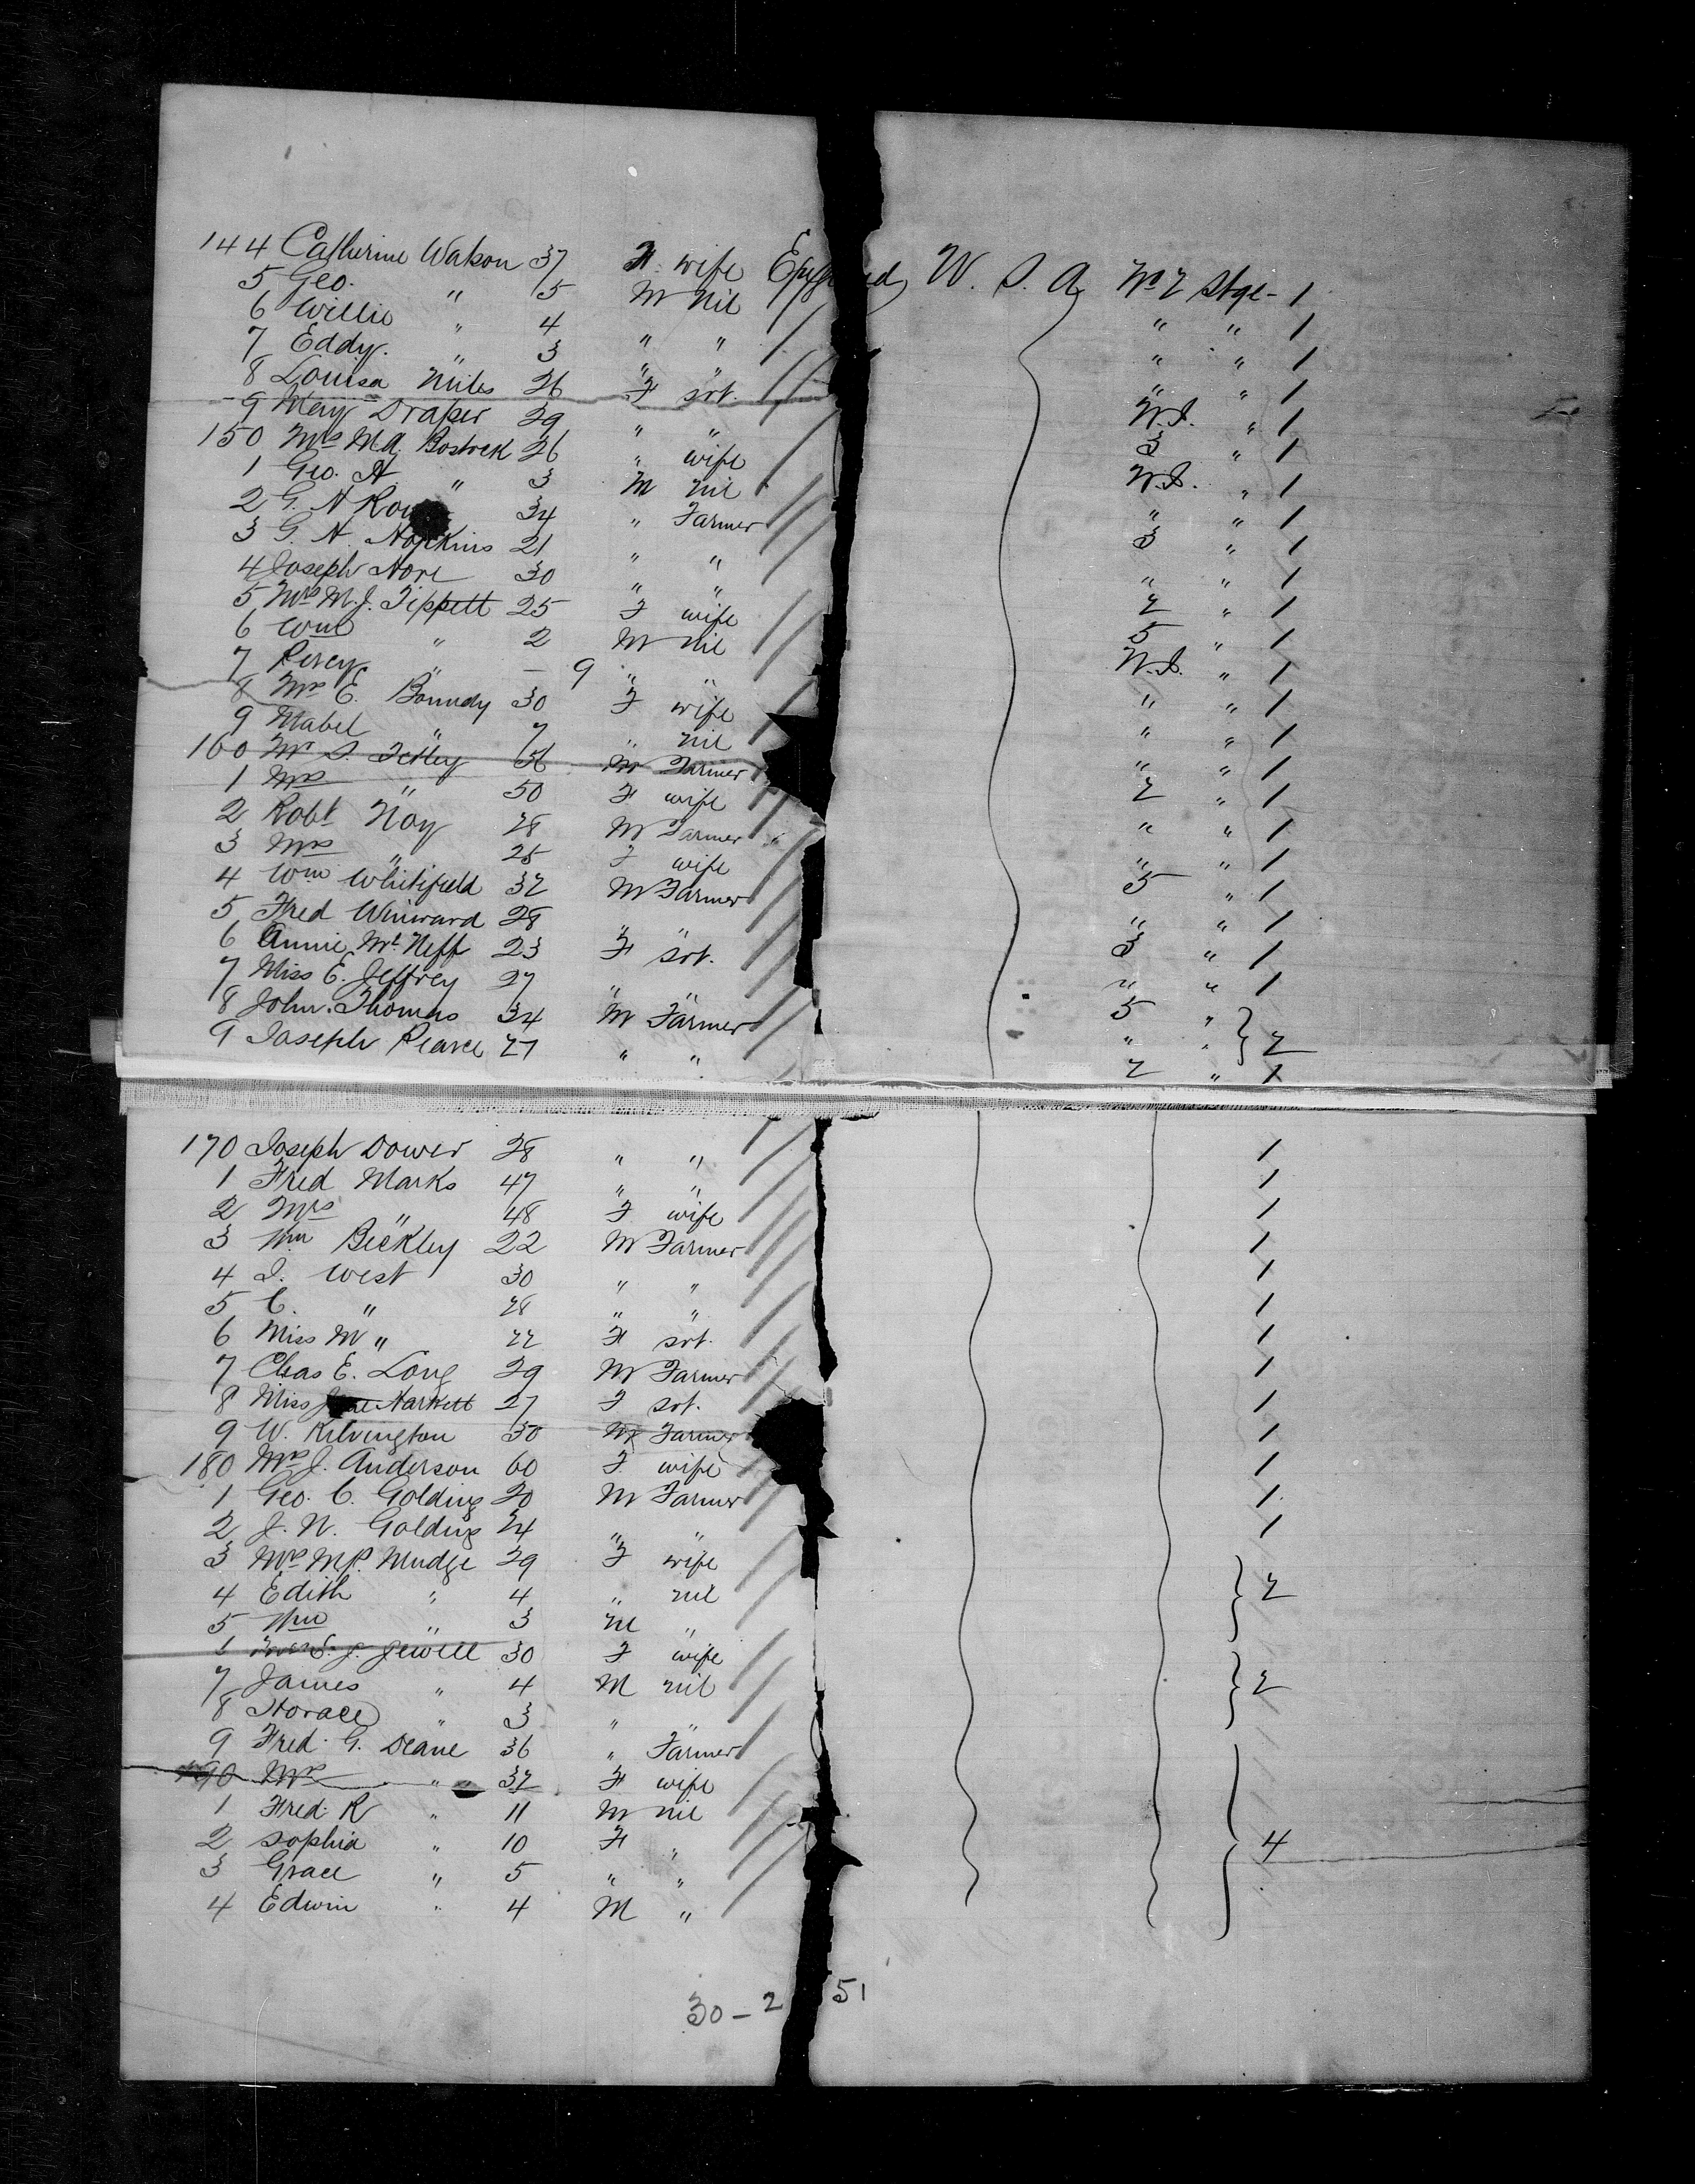 144 Catherine Watson 37 F. wife U. S. A No 2 Stge - 1
5 Geo. " 5 M nil " " 1
6 Willie " 4 " " " " 1
7 Eddy. " 3 " " " " 1
8 Louisa Miles 26 F srt. W.S. " 1
9 Mary Draper 29 " " 3 " 1
150 Mrs M.A. Bostock 26 " wife W.S. " 1
1 Geo. H " 3 M nil " " 1
2 G. N 34 " Farmer 3 " 1
3 G. H Hopkins 21 " " " " 1
4 Joseph Hore 30 " " 2 " 1
5 Mrs M. J. Tippett 25 F wife 5 " 1
6 Wm " 2 M nil W.S. " 1
7 Percy " — 9 " " " " 1
8 Mrs E. Boundy 30 F wife " " 1
9 Mabel " 7 " nil " " 1
160 Mr S. Tetley 56 M Farmer 2 " 1
1 Mrs " 50 F wife " " 1
2 Robt Hoy 28 M Farmer " " 1
3 Mrs " 25 F wife 5 " 1
4 Wm Whitifield 32 M Farmer " " 1
5 Fred Winward 28 " " 3 " 1
6 Annie Mc Neff 23 F srt. " " 1
7 Miss E. Jeffrey 27 " " 5 "
8 John. Thomas 34 M Farmer " " } 2
9 Joseph Pearce 27 " " 2 " 1
170 Joseph Dower 28 " " 1
1 Fred Marks 47 " " 1
2 Mrs " 48 F wife 1
3 Wm Beckley 22 M Farmer 1
4 J. West 30 " " 1
5 C. " 28 " " 1
6 Miss M " 22 F srt. 1
7 Chas E. Long 29 M Farmer 1
8 Miss Harkett 27 F srt. 1
9 W. Kilvington 30 M Farmer 1
180 Mrs J. Anderson 60 F wife 1
1 Geo. C. Golding 20 M Farmer 1
2 J. N. Golding 24 " " 1
3 Mrs M.P. Mudge 29 F wife
4 Edith " 4 " nil } 2
5 Wm " 3 M "
J. Jewell 30 F wife
7 James " 4 M nil } 2
8 Horace " 3 " "
9 Fred. G. Deane 36 " Farmer
190 Mrs " 32 F wife
1 Fred. R " 11 M nil
2 Sophia " 10 F " } 4
3 Grace " 5 " "
4 Edwin " 4 M "
30 - 2 51